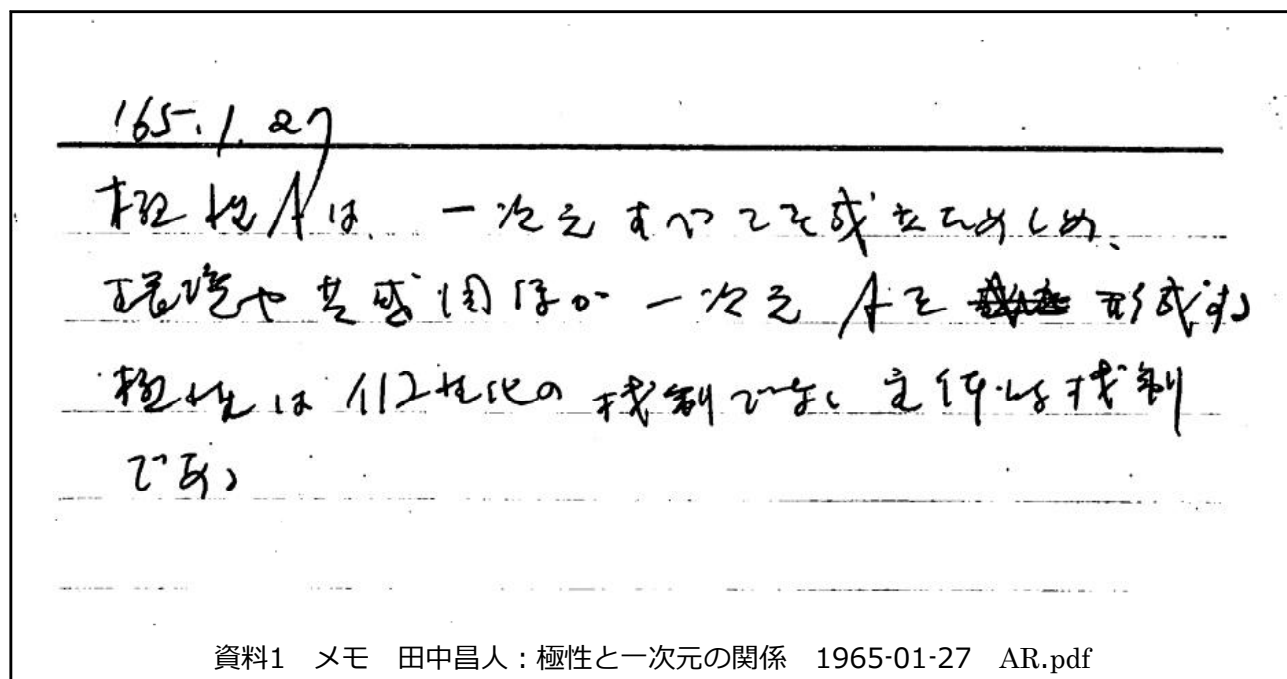 '65.1.27
極性Aは、一次元すべてを成立たしめ、
環境や共感関係が一次元Aを 形成する
極性は個性化の機制でなく主体な機制
である
資料1 メモ 田中昌人：極性と一次元の関係 1965-01-27 AR.pdf